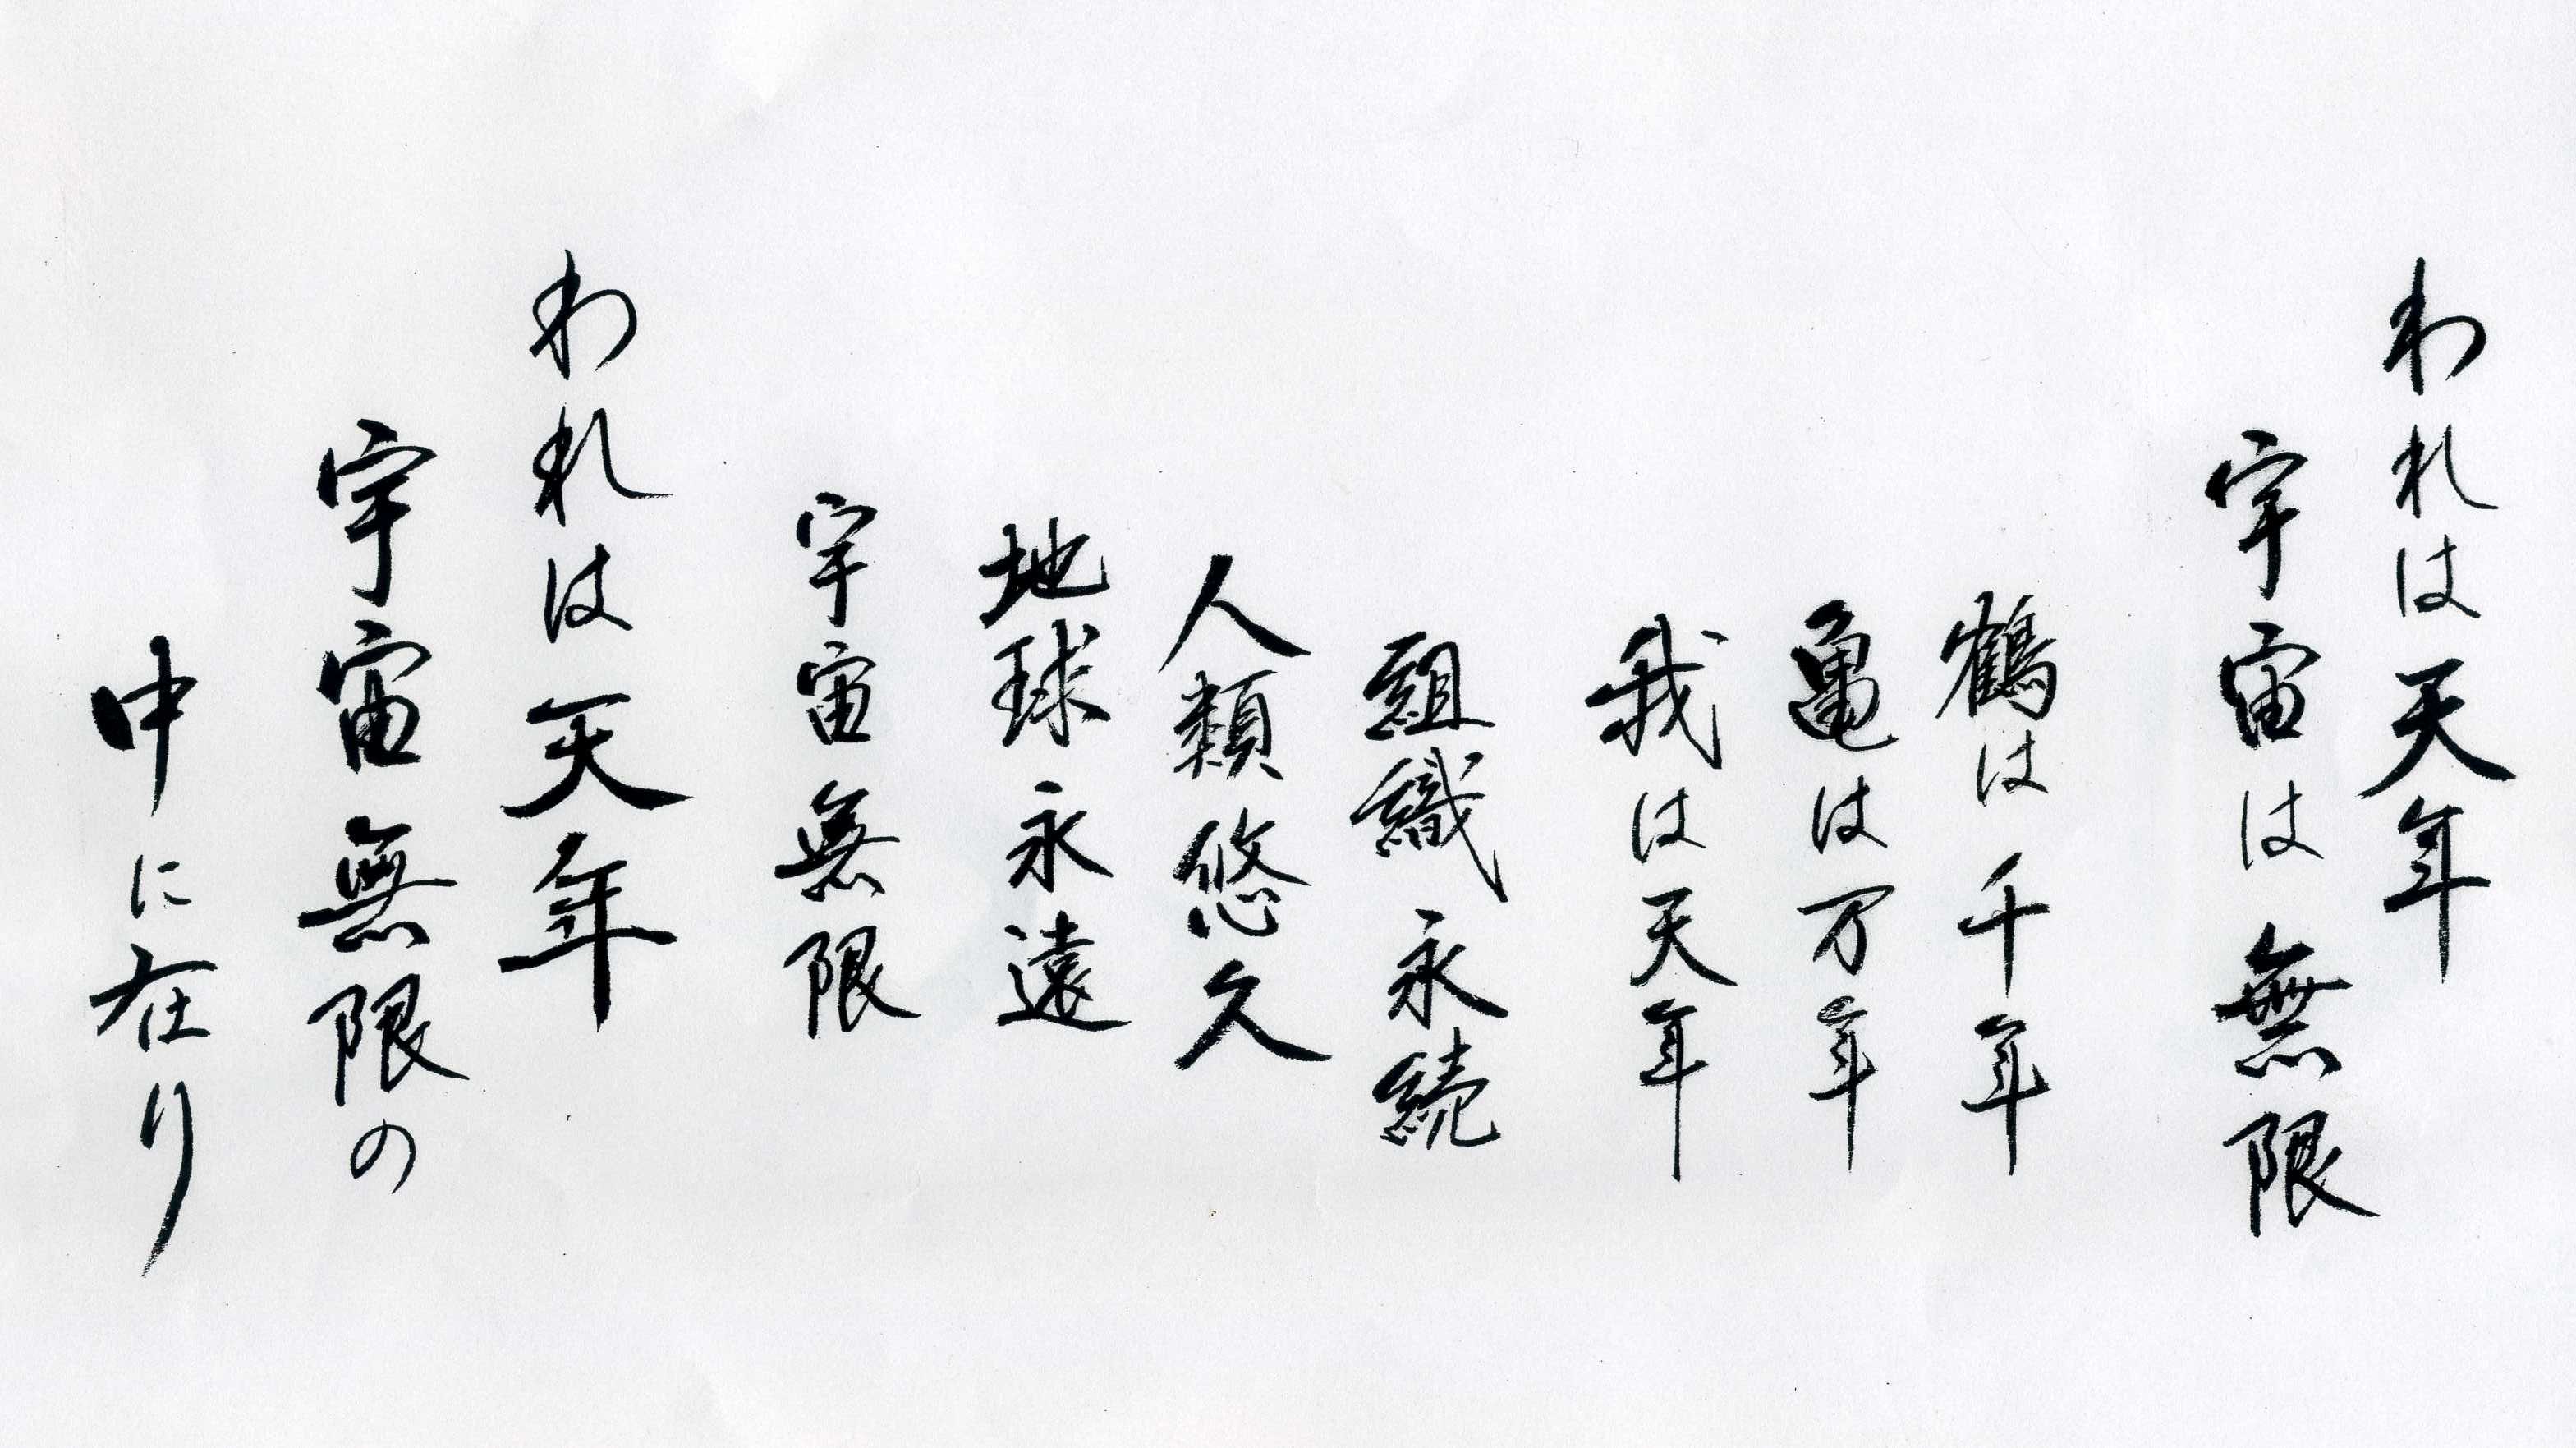 われは天年
宇宙は無限
鶴は千年
亀は万年
我は天年
組織永続
人類悠久
地球永遠
宇宙無限
われは天年
宇宙無限の
中に在り